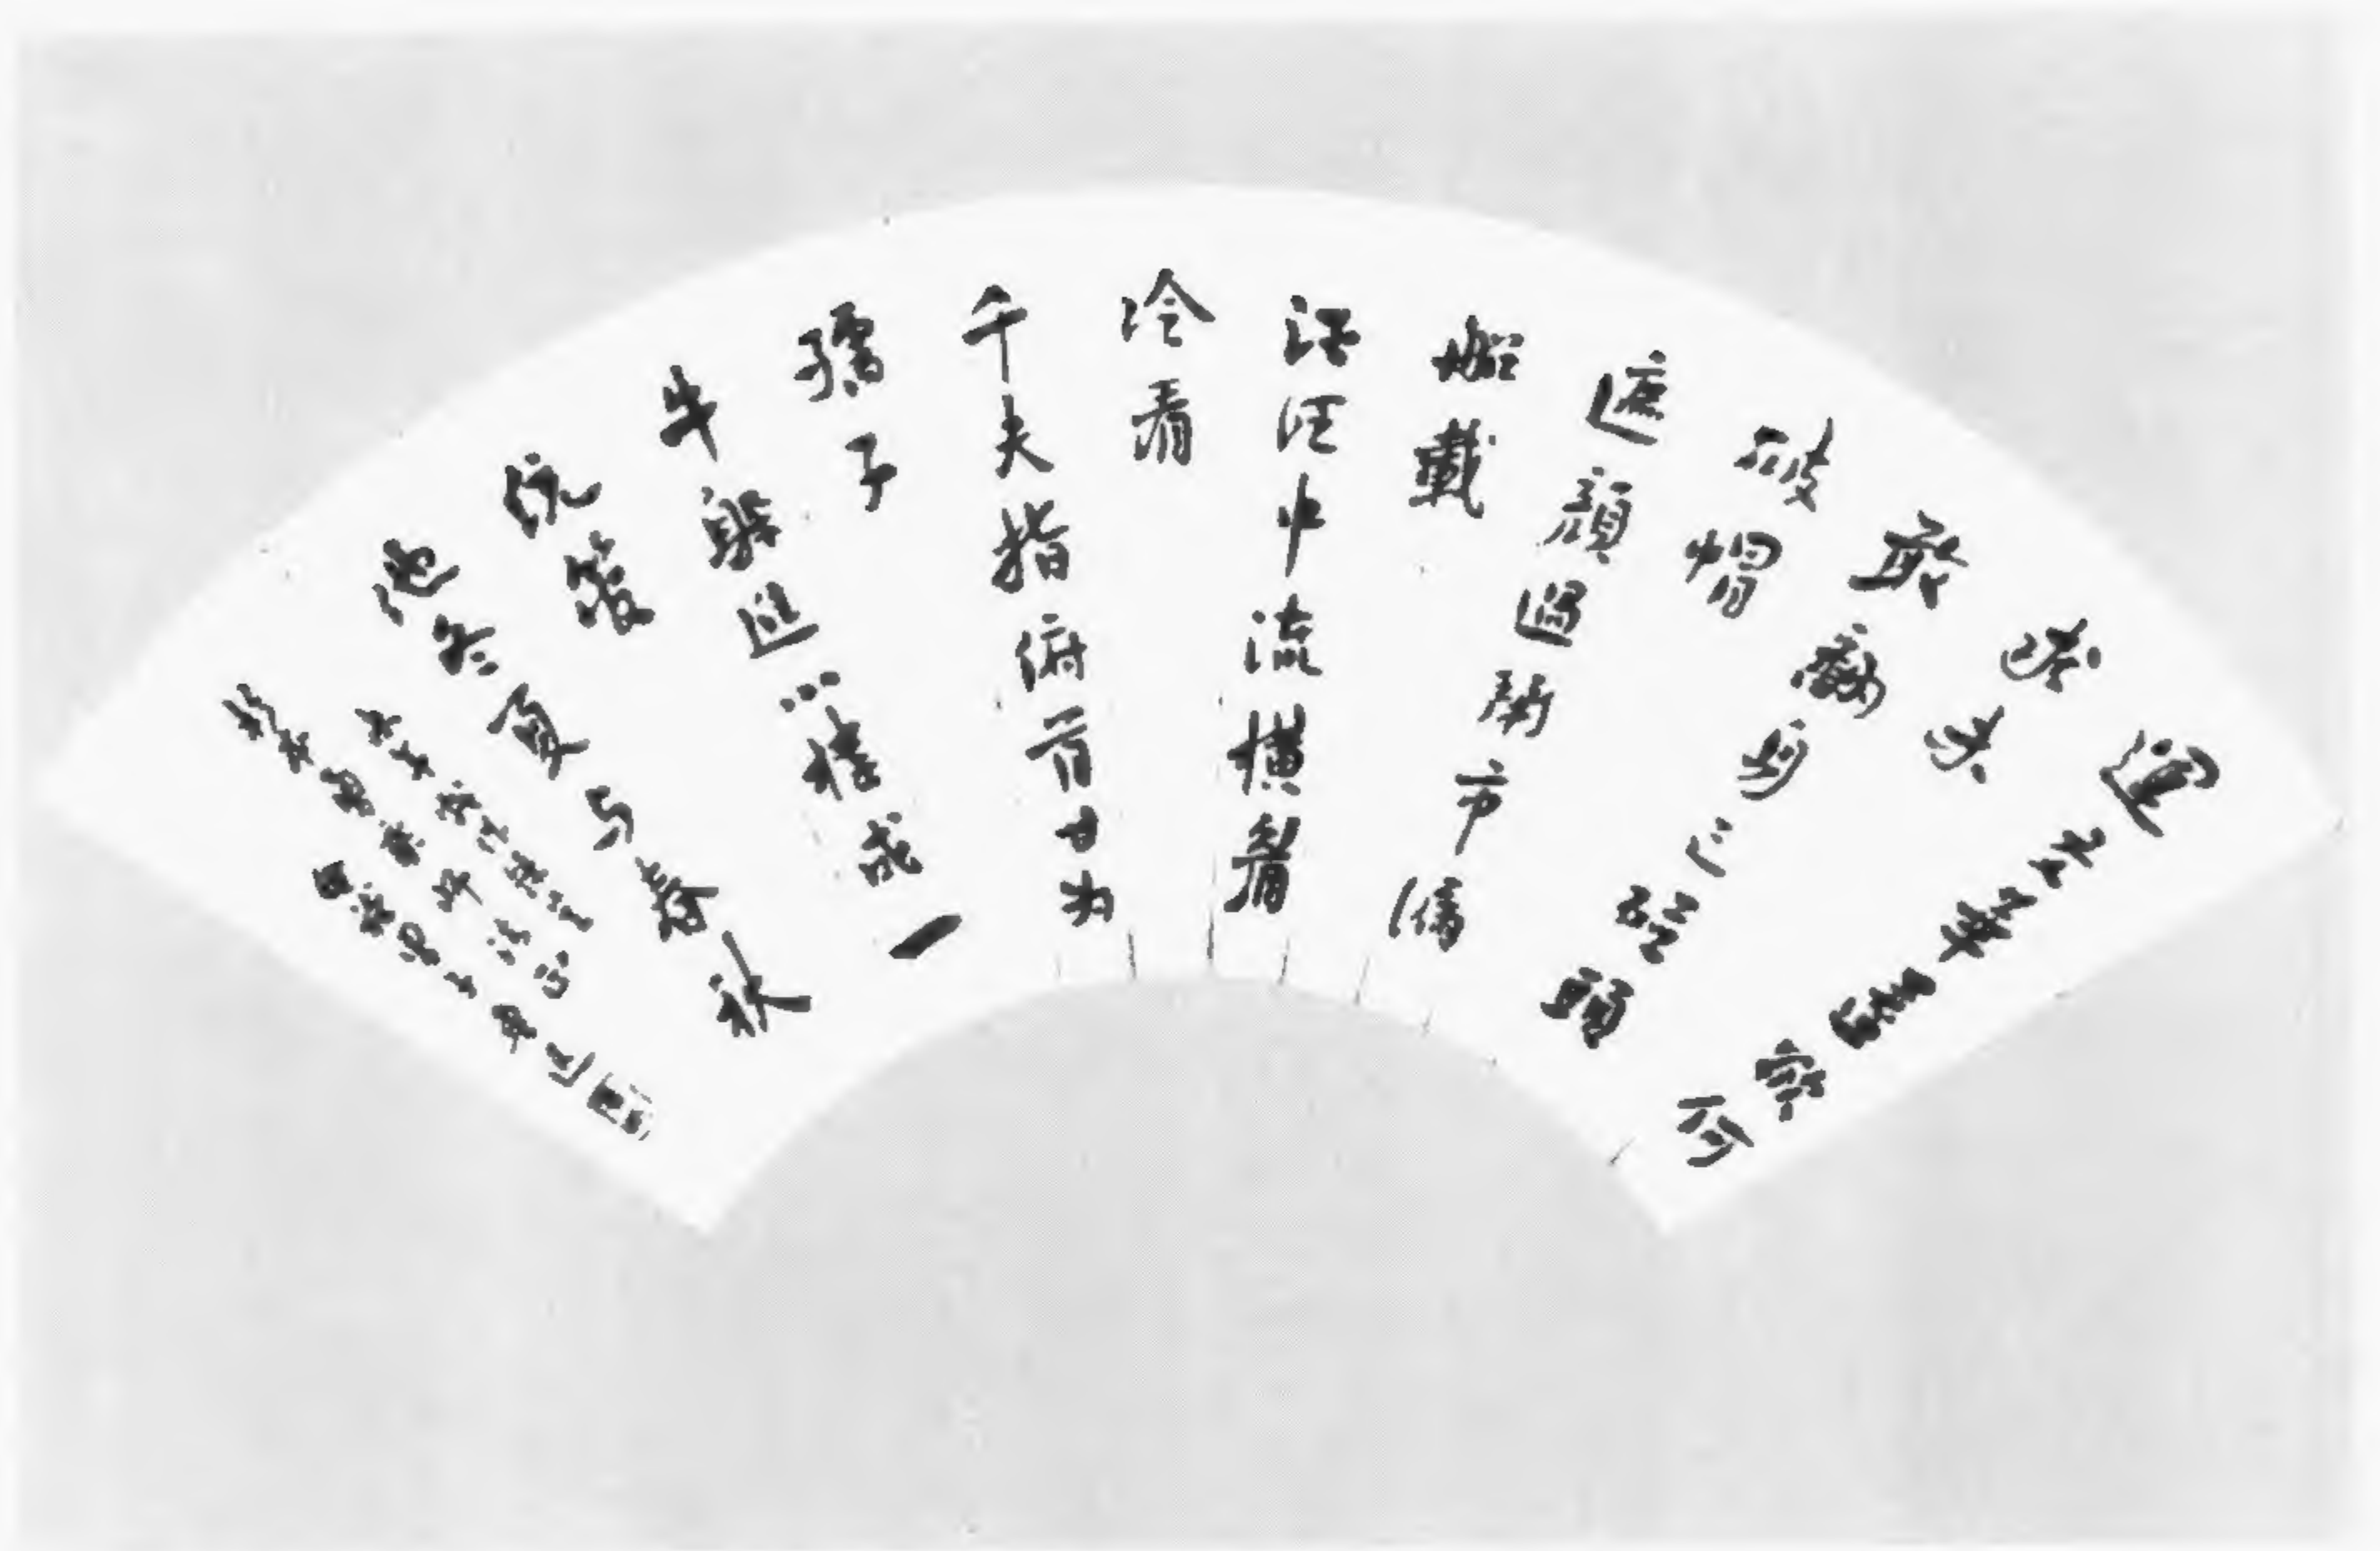 運交華蓋欲何
求未
敢翻身已碰頭
破帽
遮顏過鬧市漏
船載
酒泛中流橫眉
冷看
千夫指俯首甘为
孺子
牛躲進小樓成一
统管
他冬夏与春秋